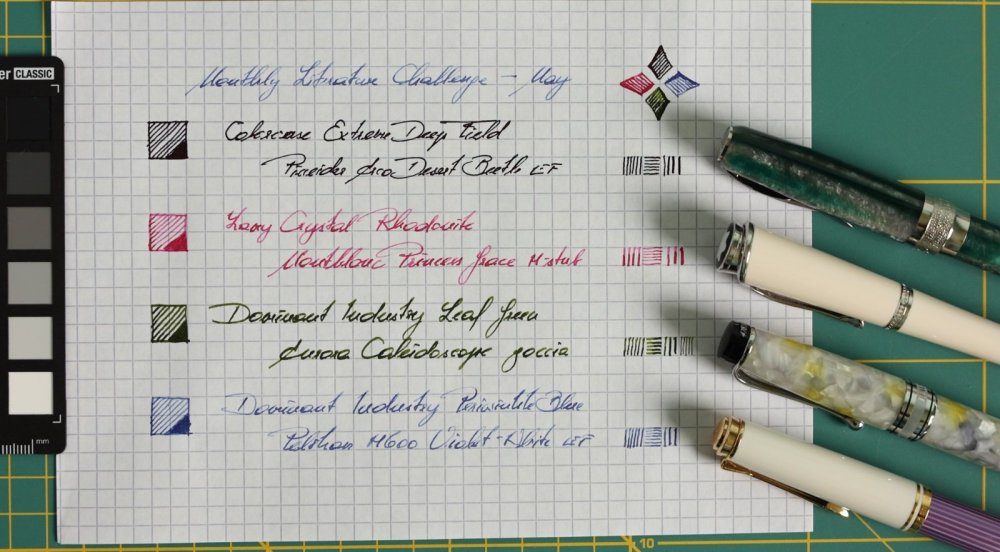 er CLASSIC
Monthly Literature Challenge – May
Colorverse Extreme Deep Field
Pineider Arco Desert Beetle EF
Lamy Crystal Rhodonite
Montblanc Princess Grace M-stub
Dominant Industry Leaf Green
Aurora Caleidoscopio goccia
Dominant Industry Periwinkle Blue
Pelikan M600 Violet-White EF
mm
10